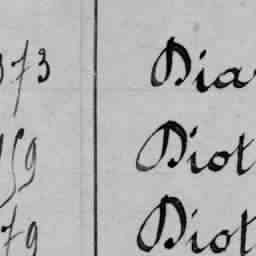 373 Dia
959 Diot
79 Diot